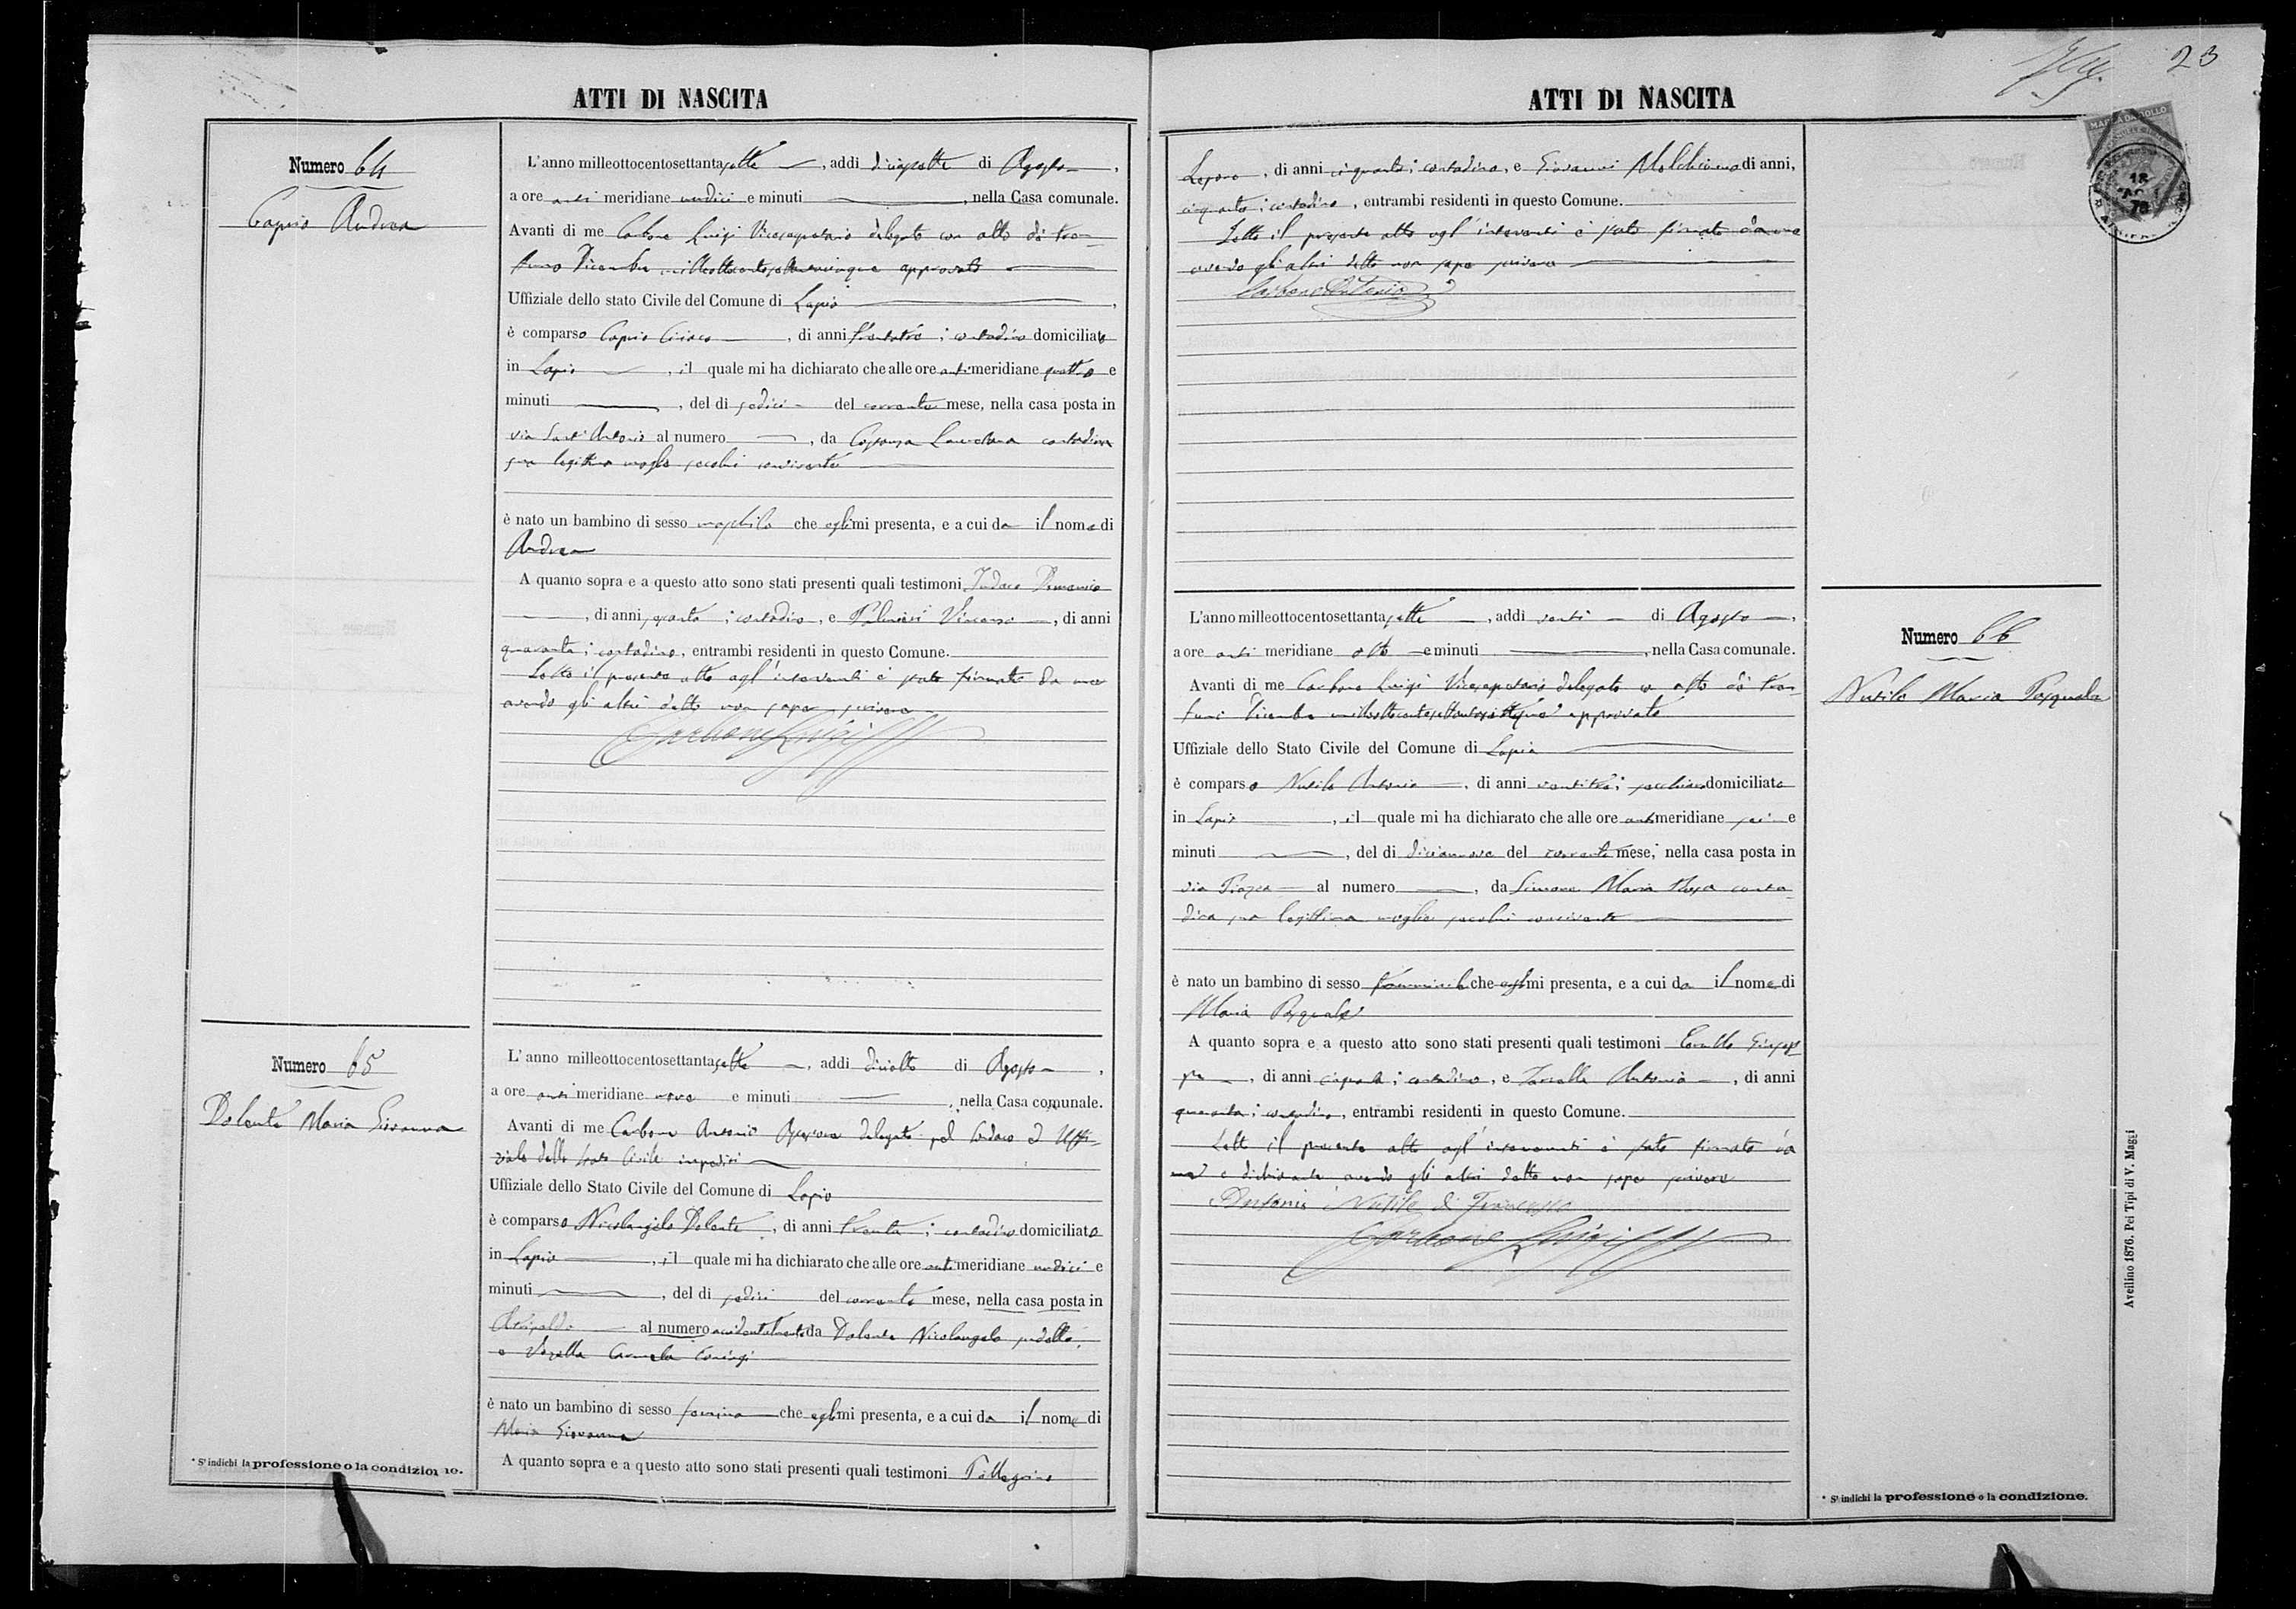 ATTI DI NASCITA
Numero 64
Caprio Andrea
L'anno milleottocentosettantasette, addi diciasette di Agosto,
a ore anti meridiane undici e minuti, nella Casa comunale.
Avanti di me Carbone Luigi Vicesegretario delegato con atto di tren
tuno Dicembre milleottocentosettantacinque approvato
Uffiziale dello stato Civile del Comune di Lapio,
è comparso Caprio Ciriaco, di anni trentatre; contadino domiciliato
in Lapio, il quale mi ha dichiarato che alle ore antimeridiane quattro e
minuti, del di sedici del corrente mese, nella casa posta in
via Sant'Antonio al numero, da contadina
sua legittima moglie secolui convivente
è nato un bambino di sesso maschile che egli mi presenta, e a cui da il nome di
Andrea
A quanto sopra e a questo atto sono stati presenti quali testimoni Domenico
, di anni ; contadino, e Vincenzo, di anni
quaranta; contadino, entrambi residenti in questo Comune.
Letto il presente atto agl'intervenuti è stato firmato da me
avendo gli altri detto non saper scrivere
Carbone Luigi
Numero 65
Dolente Maria Giovanna
L'anno milleottocentosettantasette, addi diciotto di Agosto,
a ore anti meridiane nove e minuti, nella Casa comunale.
Avanti di me Carbone Antonio Assessore delegato pel Sindaco ed Uffi-
ziale dello Stato Civile impediti
Uffiziale dello Stato Civile del Comune di Lapio
è comparso Nicolangelo Dolente, di anni trenta; contadino domiciliato
in Lapio, il quale mi ha dichiarato che alle ore antimeridiane undici e
minuti, del di sedici del corrente mese, nella casa posta in
al numero accidentalmente da Dolente Nicolangelo sudetto,
e Carmela Coniugi
è nato un bambino di sesso femmina che egli mi presenta, e a cui da il nome di
Maria Giovanna
A quanto sopra e a questo atto sono stati presenti quali testimoni Pellegrino
* S'indichi la professione o la condizione.
23
ATTI DI NASCITA
, di anni cinquanta; contadino, e Giovanni Melchionna di anni,
cinquanta; contadino, entrambi residenti in questo Comune.
Letto il presente atto agl'intervenuti è stato firmato da me
avendo gli altri detto non saper scrivere
Carbone Antonio
Numero 66
Nutile Maria Pasquala
L'anno milleottocentosettantasette, addi venti di Agosto,
a ore anti meridiane otto e minuti, nella Casa comunale.
Avanti di me Carbone Luigi Vicesegretario delegato con atto di tren
tuno Dicembre approvato
Uffiziale dello Stato Civile del Comune di Lapio
è comparso Nutile Antonio, di anni ventitre; domiciliato
in Lapio, il quale mi ha dichiarato che alle ore antimeridiane sei e
minuti, del di diciannove del corrente mese, nella casa posta in
via Piazza al numero, da Simone Maria Rosa conta
dina sua legittima moglie secolui convivente
è nato un bambino di sesso femminile che egli mi presenta, e a cui da il nome di
Maria Pasquala
A quanto sopra e a questo atto sono stati presenti quali testimoni Giusep
pe, di anni ; contadino, e Antonio, di anni
quaranta; contadino, entrambi residenti in questo Comune.
Letto il presente atto agl'intervenuti è stato firmato da
me e dichiarante avendo gli altri detto non saper scrivere
Antonio Nutile di Francesco
Carbone Luigi
* S'indichi la professione o la condizione.
Avellino 1876. Pei Tipi di V. Maggi